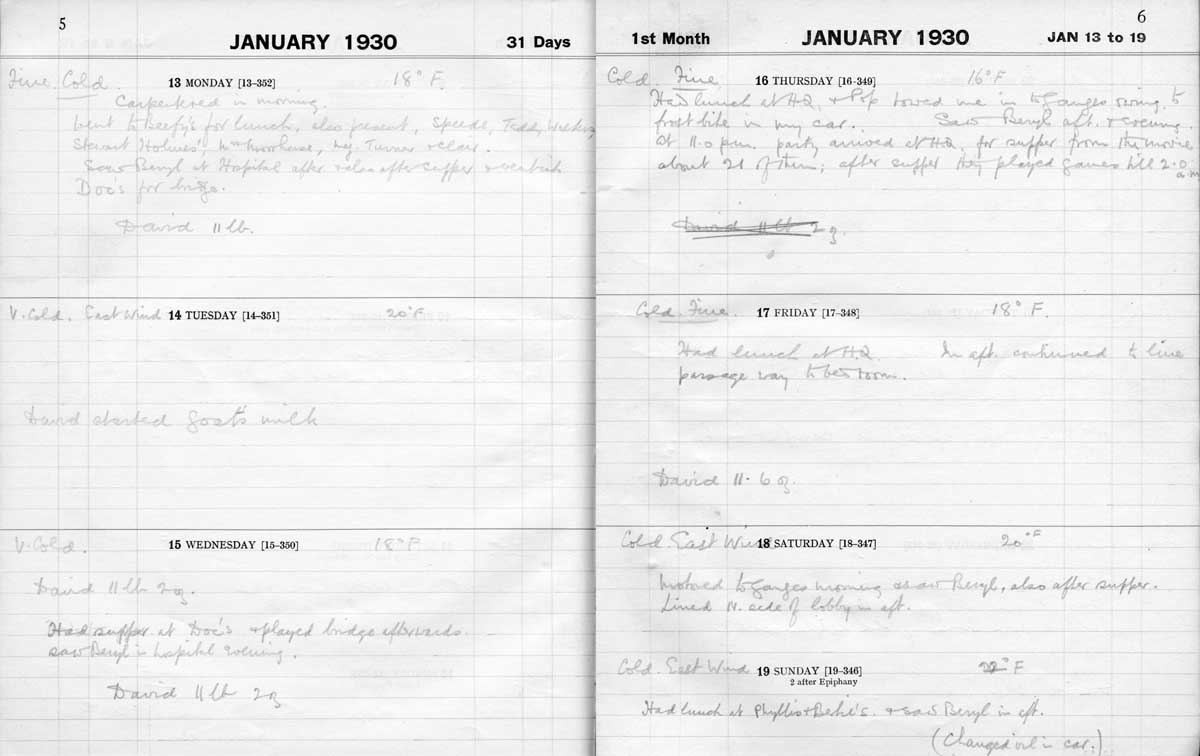 5
JANUARY 1930
31 Days
Fine. Cold.
13 MONDAY [13-352]
18° F.
Carpentered in morning.
Went to Beefy's for lunch, also present, Speede, Tedd, Walker,
Stewart Holmes', Moorhouse, Turner
Saw Beryl at Hospital after & also after supper & went
Doc's for bridge.
David 11 lb.
V. Cold. East Wind
14 TUESDAY [14-351]
20° F.
David started goat's milk
V. Cold.
15 WEDNESDAY [15-350]
18° F.
David 11 lb 2 oz.
Had supper at Doc's & played bridge afterwards.
saw Beryl in hospital evening.
David 11 lb 2 oz
6
1st Month
JANUARY 1930
JAN 13 to 19
Cold. Fine.
16 THURSDAY [16-349]
16° F
Had lunch at H.Q. & Pop towed me in to Ganges owing to
frost bite in my car. Saw Beryl aft. & evening.
At 11.0 p.m. party arrived at H.Q. for supper from the movie
about 21 of them; after supper they played games till 2.0
a.m.
David 11 lb 2 oz.
Cold. Fine.
17 FRIDAY [17-348]
18° F.
Had lunch at H.Q. In aft. continued to line
passage way to bedroom.
David 11. 6 oz.
Cold. East Wind
18 SATURDAY [18-347]
20° F
Motored to Ganges morning & saw Beryl, also after supper.
Lined N. side of lobby in aft.
Cold. East Wind
19 SUNDAY [19-346]
22° F
2 after Epiphany
Had lunch at Phyllis & & saw Beryl in aft.
(Changed oil in car.)